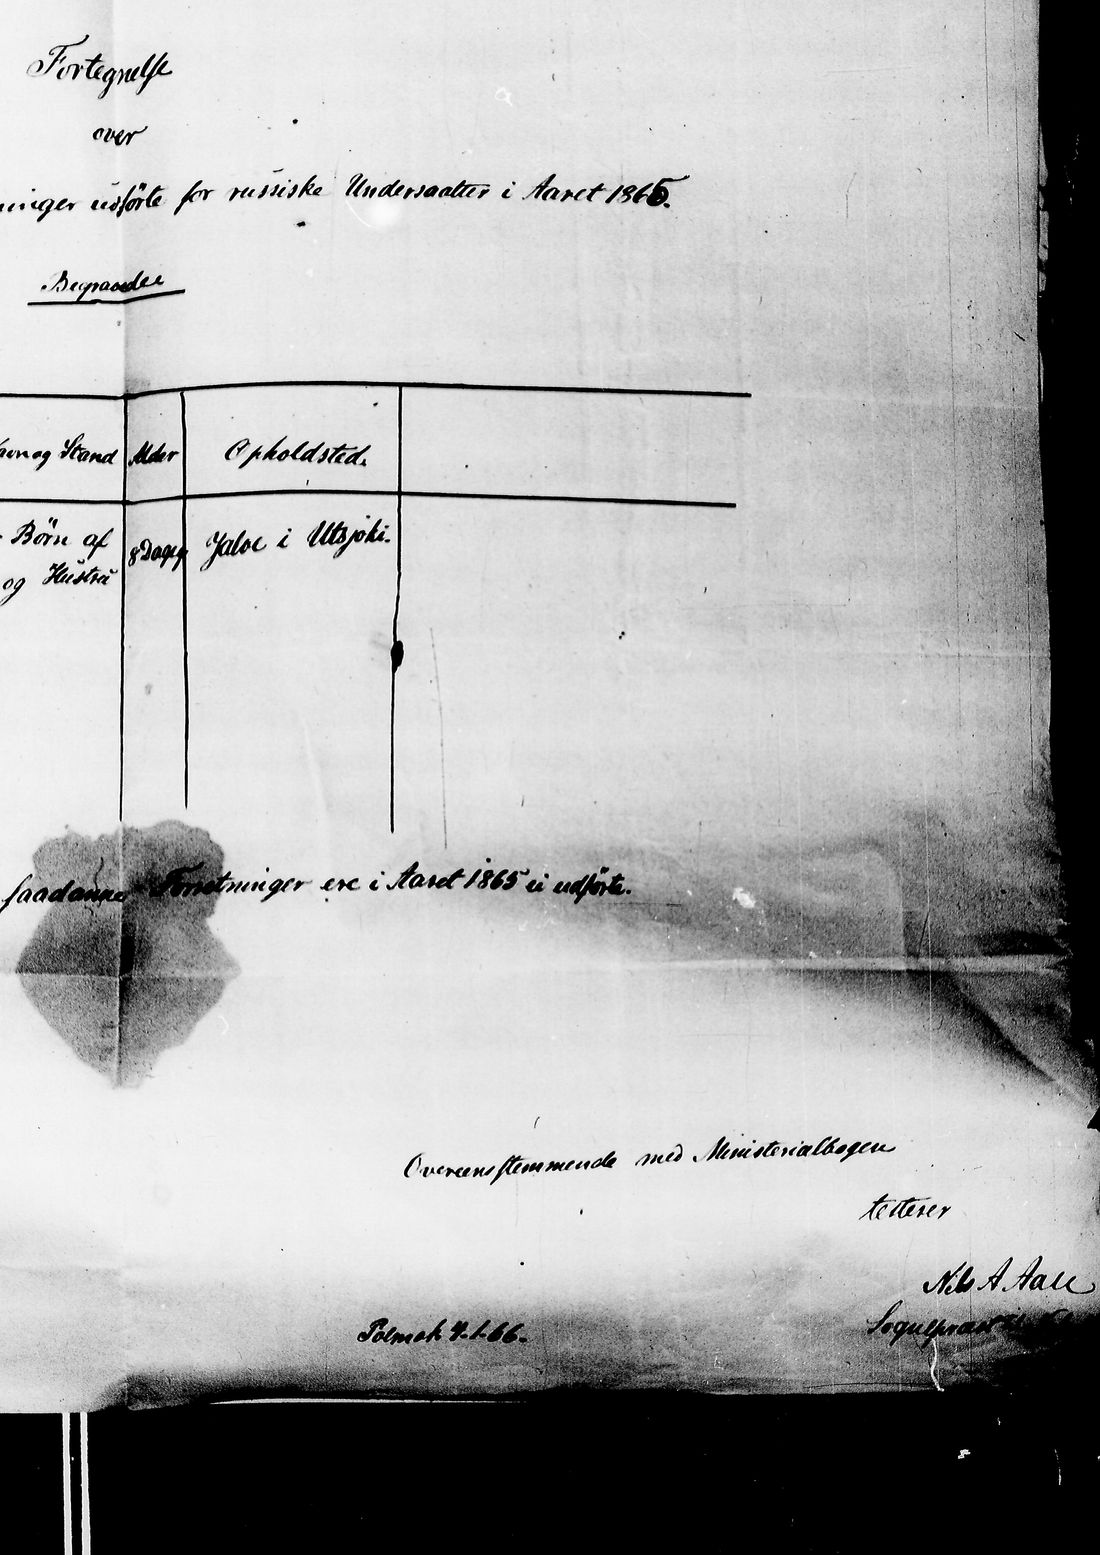 Fortegnelse
over
ninger udförte for russiske Undersaatter i Aaret 1865.
Begravede
avn og Stand Alder Opholdsted.
Börn af 8 Dage Jalve i Utsjoki.
og Hustru
saadanne Forretninger ere i Aaret 1865 ei udförte.
Overeensstemmende med Ministerialbogen
testerer
Nils A Aall
Polmak 4-1-66. Sognepræst